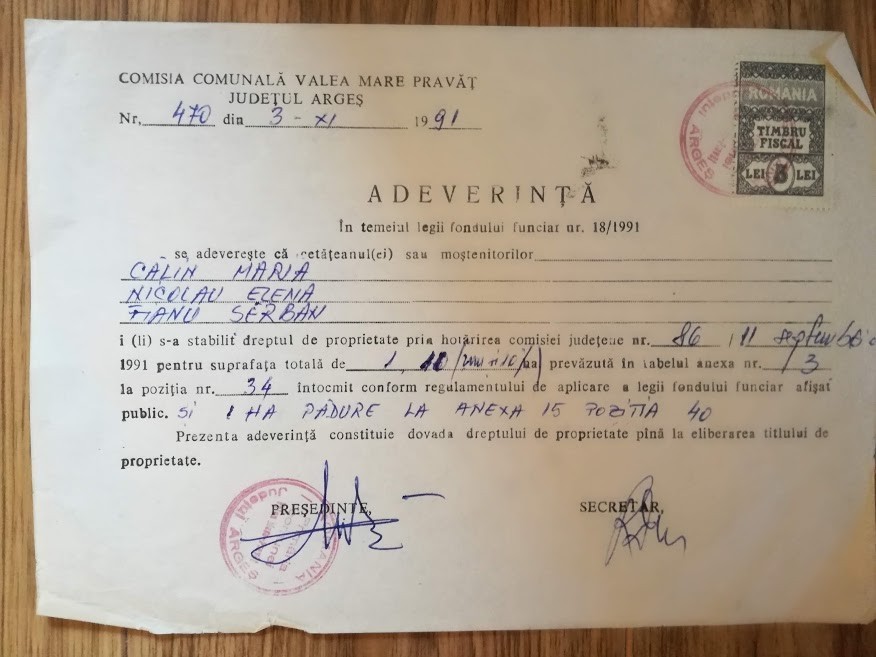 COMISIA COMUNALĂ VALEA MARE PRAVĂȚ
JUDEȚUL ARGEȘ
Nr. 470 din 3 - XI 1991
ROMÂNIA
TIMBRU
FISCAL
LEI 3 LEI
Județul
ARGEȘ
ADEVERINȚĂ
În temeiul legii fondului funciar nr. 18/1991
se adeverește că cetățeanul(ei) sau moștenitorilor
CĂLIN MARIA
NICOLAU ELENA
ȚIANU ȘERBAN
i (li) s-a stabilit dreptul de proprietate prin hotărîrea comisiei județene nr. 86 / 11 septembrie
1991 pentru suprafața totală de 1,10 (unu și 10/ha) prevăzută în tabelul anexa nr. 3
la poziția nr. 34 întocmit conform regulamentului de aplicare a legii fondului funciar afișat
public. ȘI 1 HA PĂDURE LA ANEXA 15 POZIȚIA 40
Prezenta adeverință constituie dovada dreptului de proprietate pînă la eliberarea titlului de
proprietate.
PREȘEDINTE, SECRETAR,
ROMANIA
Județul
ARGEȘ